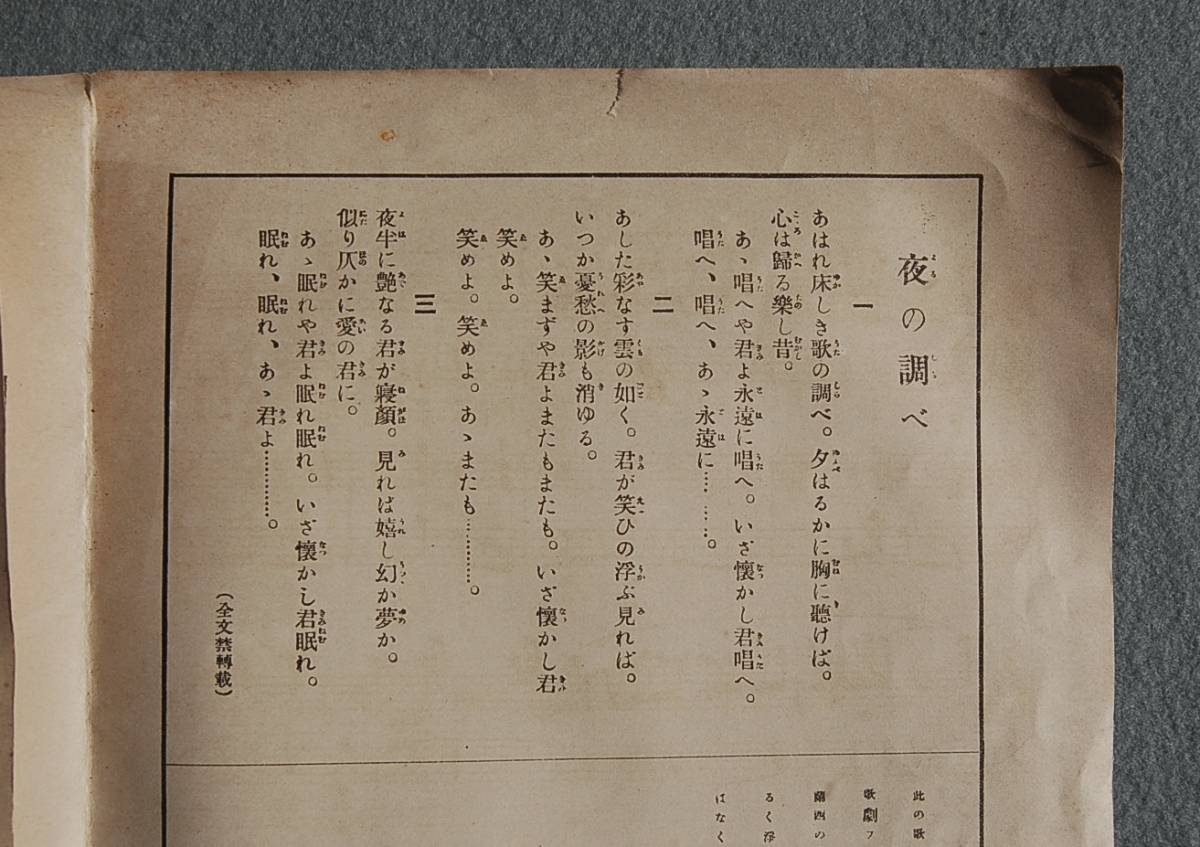 夜の調べ
一
あはれ床しき歌の調べ。夕はるかに胸に聽けば。
心は歸る樂し昔。
あゝ唱へや君よ永遠に唱へ。いざ懷かし君唱へ。
唱へ、唱へ、あゝ永遠に……。
二
あした彩なす雲の如く。君が笑ひの浮ぶ見れば。
いつか憂愁の影も消ゆる。
あゝ笑まずや君よまたもまたも。いざ懷かし君
笑めよ。
笑めよ。笑めよ。あゝまたも…………。
三
夜半に艶なる君が寢顏。見れば嬉し幻か夢か。
似り仄かに愛の君に。
あゝ眠れや君よ眠れ眠れ。いざ懷かし君眠れ。
眠れ、眠れ、あゝ君よ…………。
(全文禁轉載)
此の歌
歌劇フ
蘭西の
るく浮
はなく